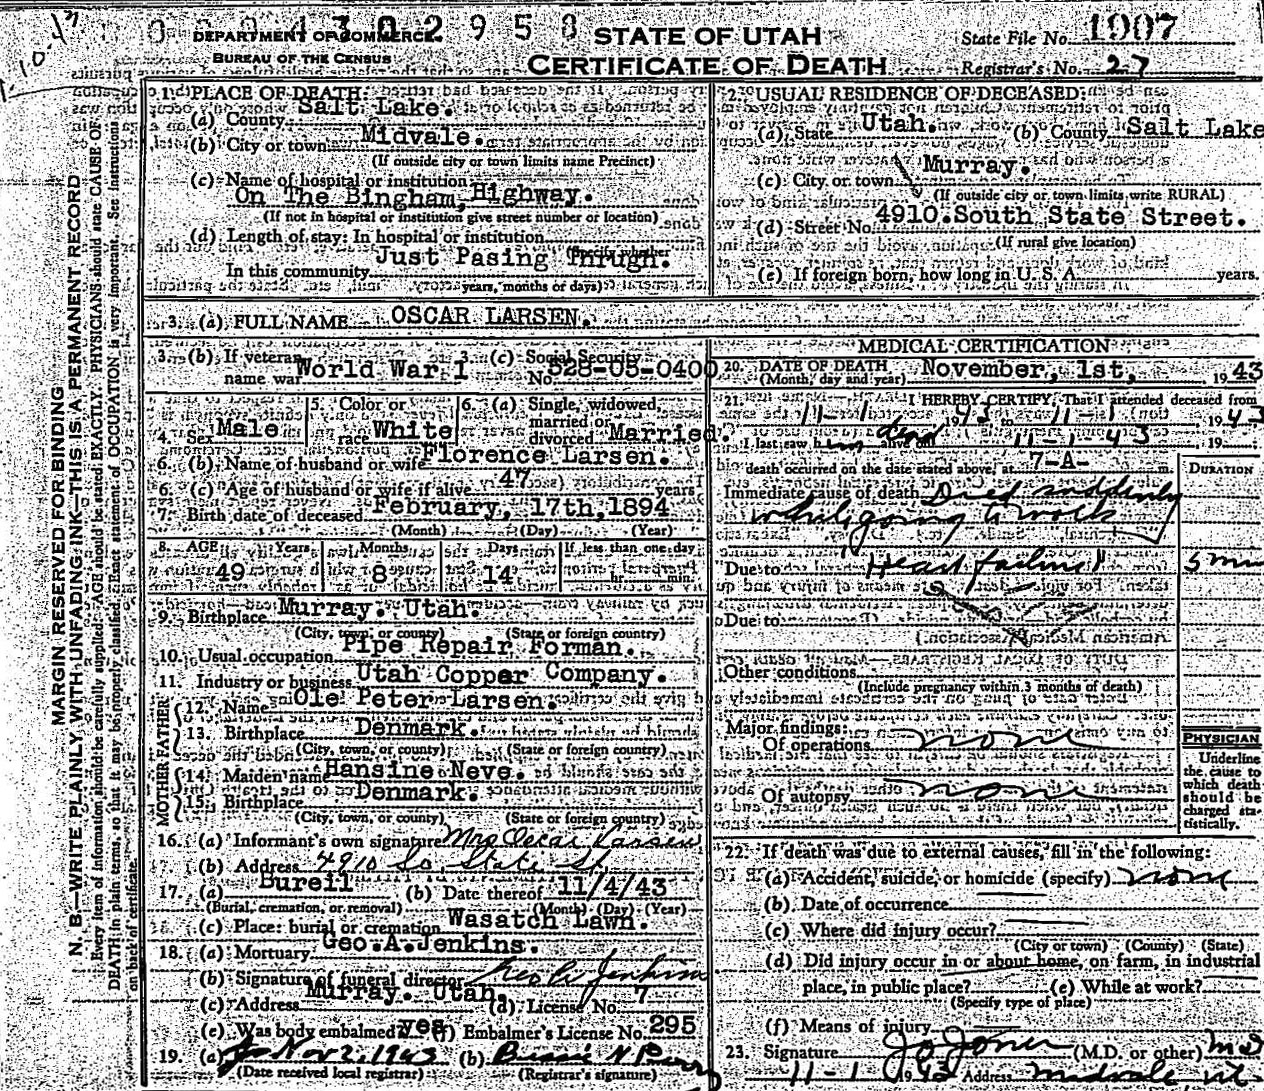 DEPARTMENT OF COMMERCE
BUREAU OF THE CENSUS
STATE OF UTAH
CERTIFICATE OF DEATH
State File No. 1907
Registrar's No. 27
MARGIN RESERVED FOR BINDING
N. B.—WRITE PLAINLY WITH UNFADING INK—THIS IS A PERMANENT RECORD
Every item of information should be carefully supplied. AGE should be stated EXACTLY. PHYSICIANS should state CAUSE OF
DEATH in plain terms, so that it may be properly classified. Exact statement of OCCUPATION is very important. See instructions
on back of certificate.
1. PLACE OF DEATH:
(a) County Salt Lake.
(b) City or town Midvale.
(If outside city or town limits name Precinct)
(c) Name of hospital or institution
On The Bingham, Highway.
(If not in hospital or institution give street number or location)
(d) Length of stay: In hospital or institution
(Specify whether
In this community Just Pasing Thrugh.
years, months or days)
2. USUAL RESIDENCE OF DECEASED:
(a) State Utah. (b) County Salt Lake
(c) City or town Murray.
(If outside city or town limits write RURAL)
(d) Street No. 4910.South State Street.
(If rural give location)
(e) If foreign born, how long in U. S. A. years.
3. (a) FULL NAME OSCAR LARSEN.
3. (b) If veteran name war World War I 3. (c) Social Security No. 528-05-0400
4. Sex Male 5. Color or race White 6. (a) Single, widowed, married or divorced Married.
6. (b) Name of husband or wife Florence Larsen.
6. (c) Age of husband or wife if alive 47 years
7. Birth date of deceased February, 17th,1894
(Month) (Day) (Year)
8. AGE Years 49 Months 8 Days 14 If less than one day hr. min.
9. Birthplace Murray. Utah.
(City, town, or county) (State or foreign country)
10. Usual occupation Pipe Repair Forman.
11. Industry or business Utah Copper Company.
FATHER
12. Name Ole Peter Larsen.
13. Birthplace Denmark.
(City, town, or county) (State or foreign country)
MOTHER
14. Maiden name Hansine Neve.
15. Birthplace Denmark.
(City, town, or county) (State or foreign country)
16. (a) Informant's own signature Mrs Oscar Larsen
(b) Address 4910 So State St
17. (a) Bureil (b) Date thereof 11/4/43
(Burial, cremation, or removal) (Month) (Day) (Year)
(c) Place: burial or cremation Wasatch Lawn.
18. (a) Mortuary Geo.A.Jenkins.
(b) Signature of funeral director Geo A Jenkins
(c) Address Murray. Utah. (d) License No. 7
(e) Was body embalmed? yes (f) Embalmer's License No. 295
19. (a) Nov 2, 1943 (b)
(Date received local registrar) (Registrar's signature)
MEDICAL CERTIFICATION
20. DATE OF DEATH
(Month, day and year) November, 1st, 1943
21. I HEREBY CERTIFY, That I attended deceased from
11-1 1943 to 11-1 1943
I last saw him dead 11-1-43 19
death occurred on the date stated above, at 7-A- m.
DURATION
Immediate cause of death Died suddenly
while going to work
Due to Heart failure 5 min
Due to
Other conditions
(Include pregnancy within 3 months of death)
Major findings:
Of operations none
Of autopsy none
PHYSICIAN
Underline
the cause to
which death
should be
charged sta-
tistically.
22. If death was due to external causes, fill in the following:
(a) Accident, suicide, or homicide (specify) none
(b) Date of occurrence
(c) Where did injury occur?
(City or town) (County) (State)
(d) Did injury occur in or about home, on farm, in industrial
place, in public place? (e) While at work?
(Specify type of place)
(f) Means of injury
23. Signature Jo Jones (M.D. or other) MD
11-1 1943 Address Midvale Ut.